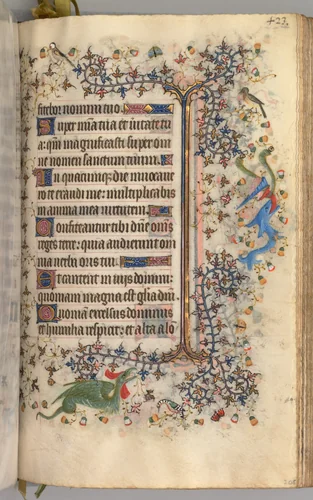 423.
fitebor nomini tuo.
Super mīam tuā et ūitate tu
a: qm̄ magnificasti super om
ne nomen sanctum tuum.
In quacumq; die inuocaue
ro te exaudi me: multiplicabis
in anima mea uirtutem.
Confiteantur tibi dn̄e om̄s
reges terre: quia audierunt om
nia uerba oris tui.
Et cantent in uijs domini:
quoniam magna est gl̄ia dn̄i.
Quoniam excelsus dominus
et humilia respicit: et alta a lō